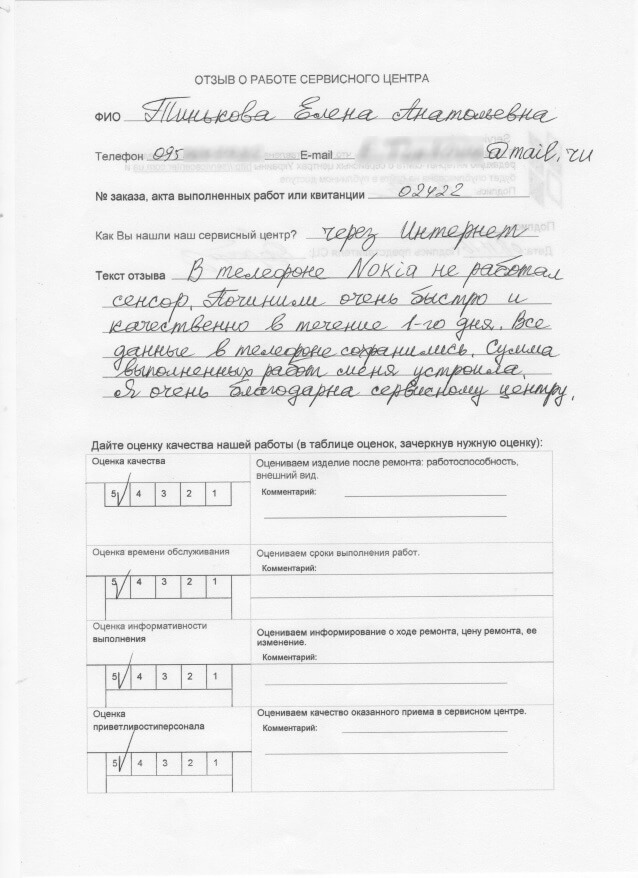 ОТЗЫВ О РАБОТЕ СЕРВИСНОГО ЦЕНТРА
ФИО Тинькова Елена Анатольевна
Телефон 095 E-mail @mail.ru
№ заказа, акта выполненных работ или квитанции 02422
Как Вы нашли наш сервисный центр? через Интернет
Текст отзыва В телефоне Nokia не работал
сенсор. Починили очень быстро и
качественно в течение 1-го дня. Все
данные в телефоне сохранились. Сумма
выполненных работ меня устроила.
Я очень благодарна сервисному центру.
Дайте оценку качества нашей работы (в таблице оценок, зачеркнув нужную оценку):
Оценка качества
5 4 3 2 1
Оцениваем изделие после ремонта: работоспособность,
внешний вид.
Комментарий:
Оценка времени обслуживания
5 4 3 2 1
Оцениваем сроки выполнения работ.
Комментарий:
Оценка информативности
выполнения
5 4 3 2 1
Оцениваем информирование о ходе ремонта, цену ремонта, ее
изменение.
Комментарий:
Оценка
приветливостиперсонала
5 4 3 2 1
Оцениваем качество оказанного приема в сервисном центре.
Комментарий: